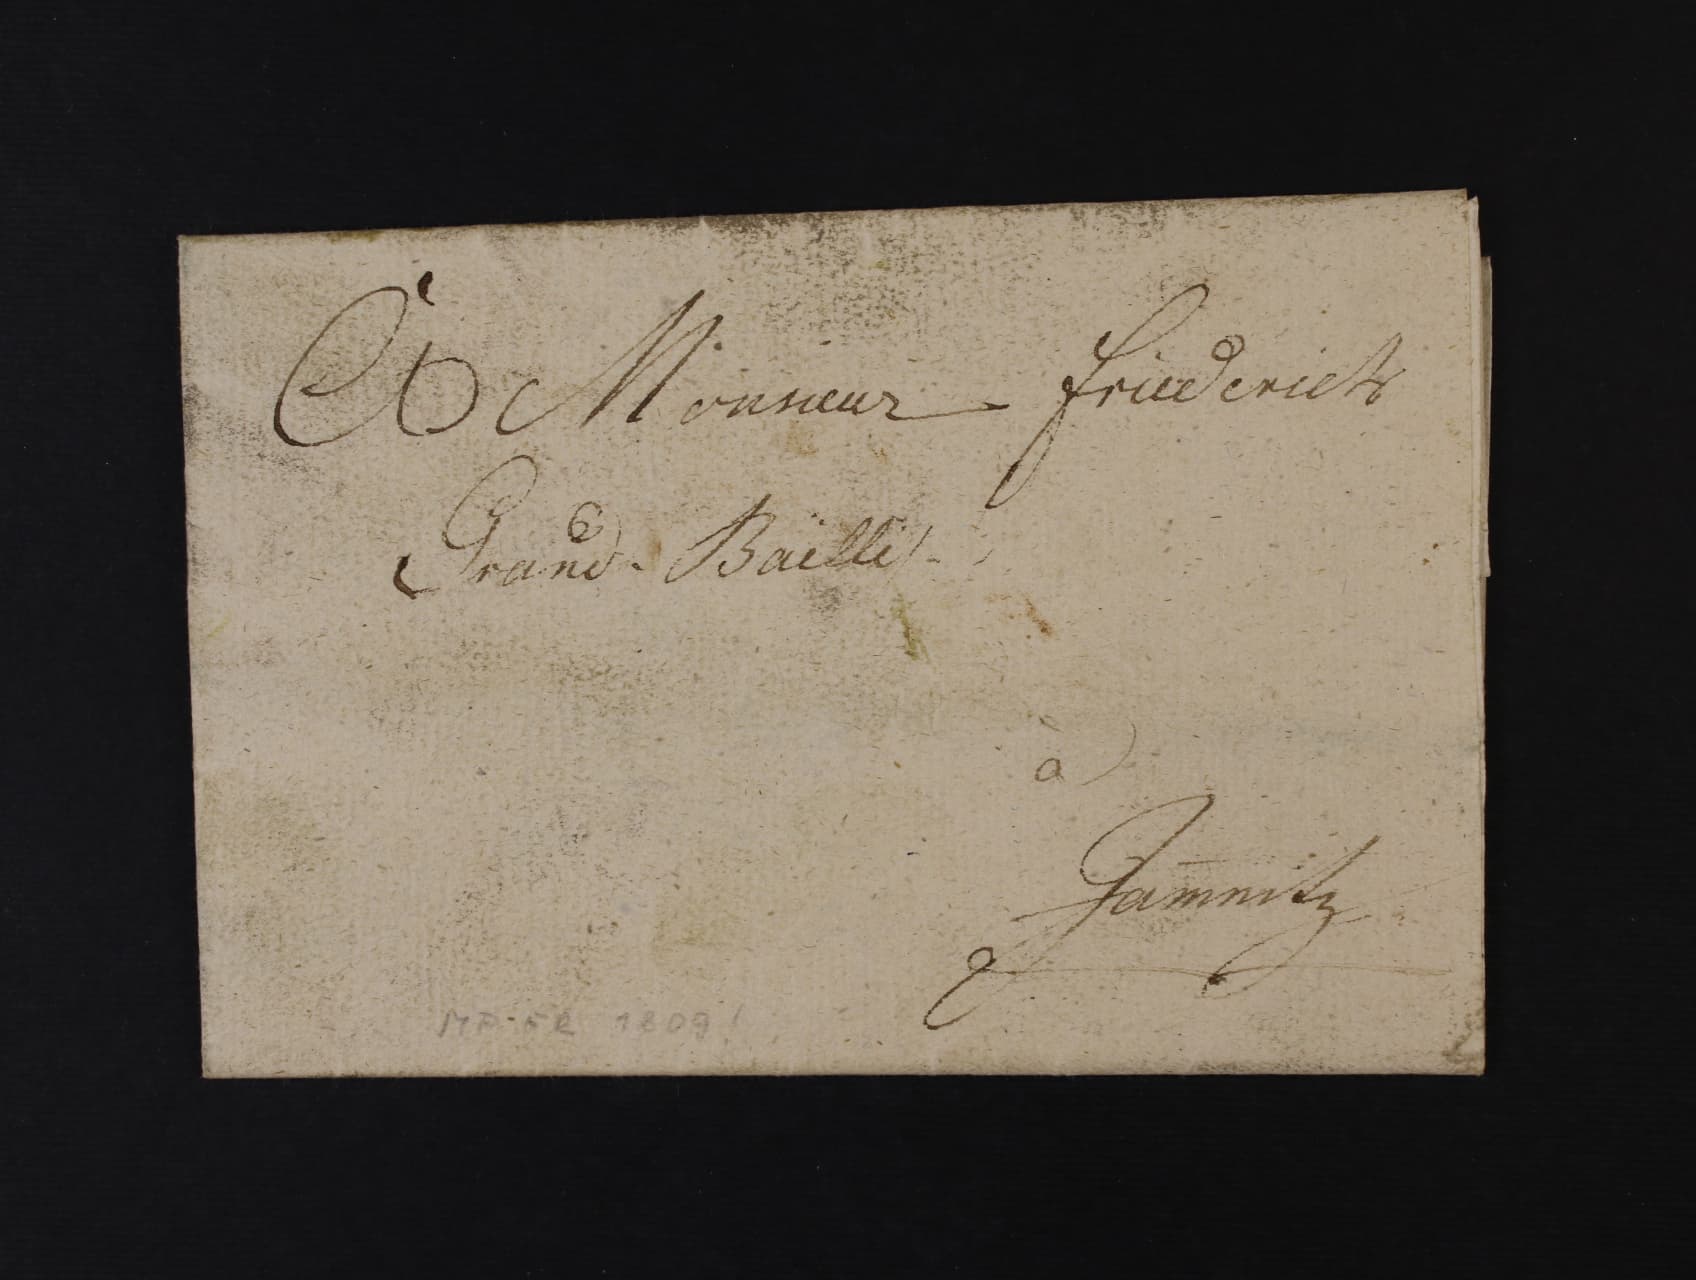 À Monsieur Friederich
Grand-Bailli
à
Jam̅nitz
MP-FR 1809!